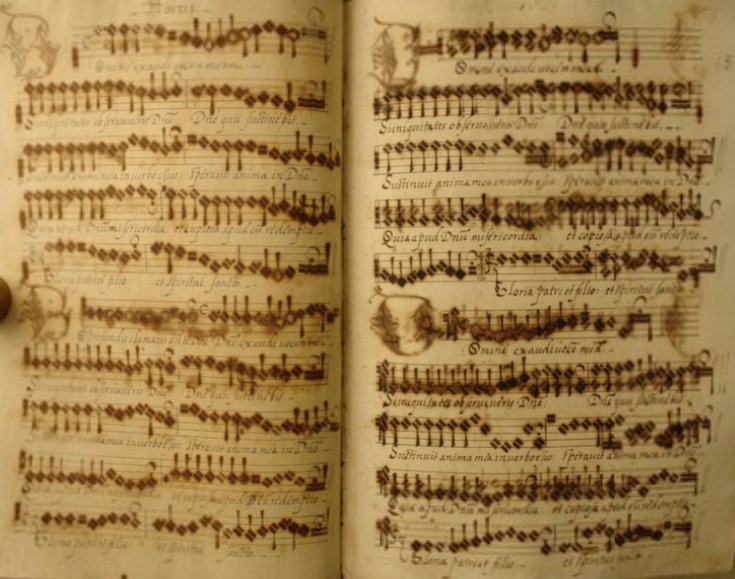 exaudi vocem meam.
Si iniquitates observaveris Dñe Dñe quis sustinebit.
anima mea in verbo eius: speravit anima in Dño.
Quia apud Dñum misericordia: et copiosa apud eũ redemptio
Gloria patri et filio et spiritui sancto.
De profundis clamavi ad te Dñe Dñe exaudi vocem
Si iniquitates observaveris Dñe Dñe quis sustinebit.
anima mea in verbo eius: speravit anima mea in Dño.
et copiosa apud eũ redemptio
Gloria patri et filio et spiritui sancto.
Domine exaudi vocem meã.
Si iniquitates observaveris Dñe: Dñe quis sustinebit.
Sustinuit anima mea in verbo eius: speravit anima mea in Dño.
Quia apud Dñũ misericordia: et copiosa apud eũ redemptio.
Gloria patri et filio: et spiritui sancto
Domine exaudi vocẽ meã.
Si iniquitates observaveris Dñe: Dñe quis sustinebit
Sustinuit anima mea in verbo eius: speravit anima mea in Dño.
Quia apud Dñũ misericordia et copiosa apud eũ redemptio.
Gloria patri et filio et spiritui